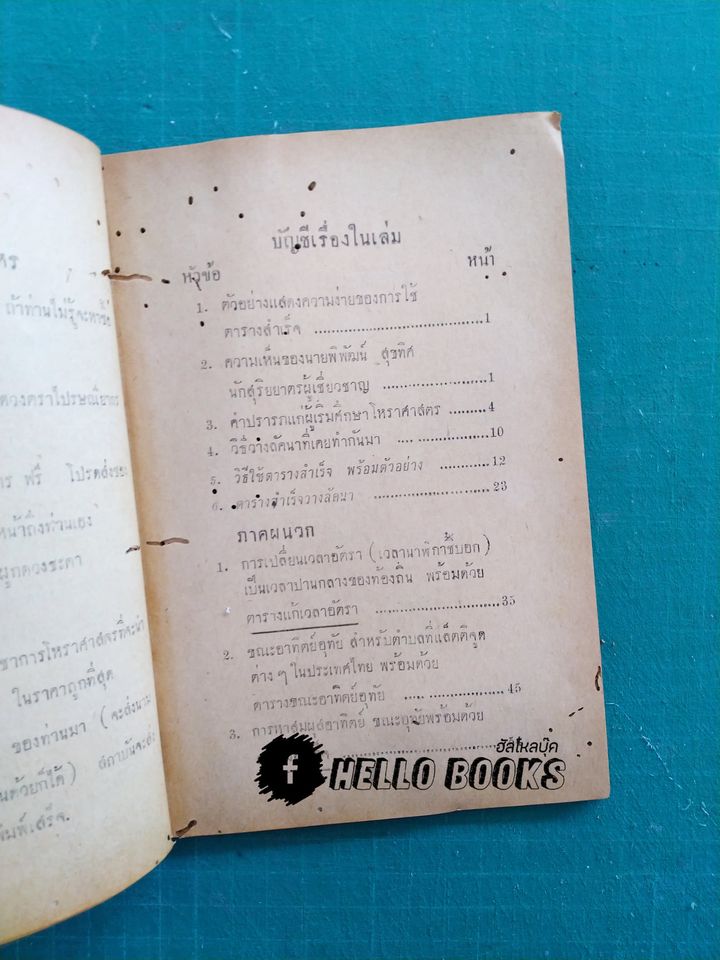 หร
ถ้าท่านไม่รู้จะหาซื้อ
ดวงตราไปรษณียากร
าร ฟรี โปรดส่งซอง
หน้าถึงท่านเอง
ผูกดวงชะตา
ชาการโหราศาสตร์ที่จะนำ
ในราคาถูกที่สุด
ของท่านมา (จะส่งนาม
นด้วยก็ได้) สถาบันจะส่ง
พิมพ์เสร็จ.
บัญชีเรื่องในเล่ม
หัวข้อ หน้า
1. ตัวอย่างแสดงความง่ายของการใช้
ตารางสำเร็จ ........................................1
2. ความเห็นของนายพิพัฒน์ สุขทิศ
นักสุริยยาตรผู้เชี่ยวชาญ .........................1
3. คำปรารภแก่ผู้เริ่มศึกษาโหราศาสตร์ .........4
4. วิธีวางลัคนาที่เคยทำกันมา .... ..............10
5. วิธีใช้ตารางสำเร็จ พร้อมตัวอย่าง ............12
6. ตารางสำเร็จวางลัคนา ..........................23
ภาคผนวก
1. การเปลี่ยนเวลาอัตรา (เวลานาฬิกาชี้บอก)
เป็นเวลาปานกลางของท้องถิ่น พร้อมด้วย
ตารางแก้เวลาอัตรา .............................35
2. ขณะอาทิตย์อุทัย สำหรับตำบลที่แล็ตติจูด
ต่าง ๆ ในประเทศไทย พร้อมด้วย
ตารางขณะอาทิตย์อุทัย ..... ...................45
3. การหาสมผุสอาทิตย์ ขณะอุทัยพร้อมด้วย
ฮัลโหลบุ๊ค
f HELLO BOOKS